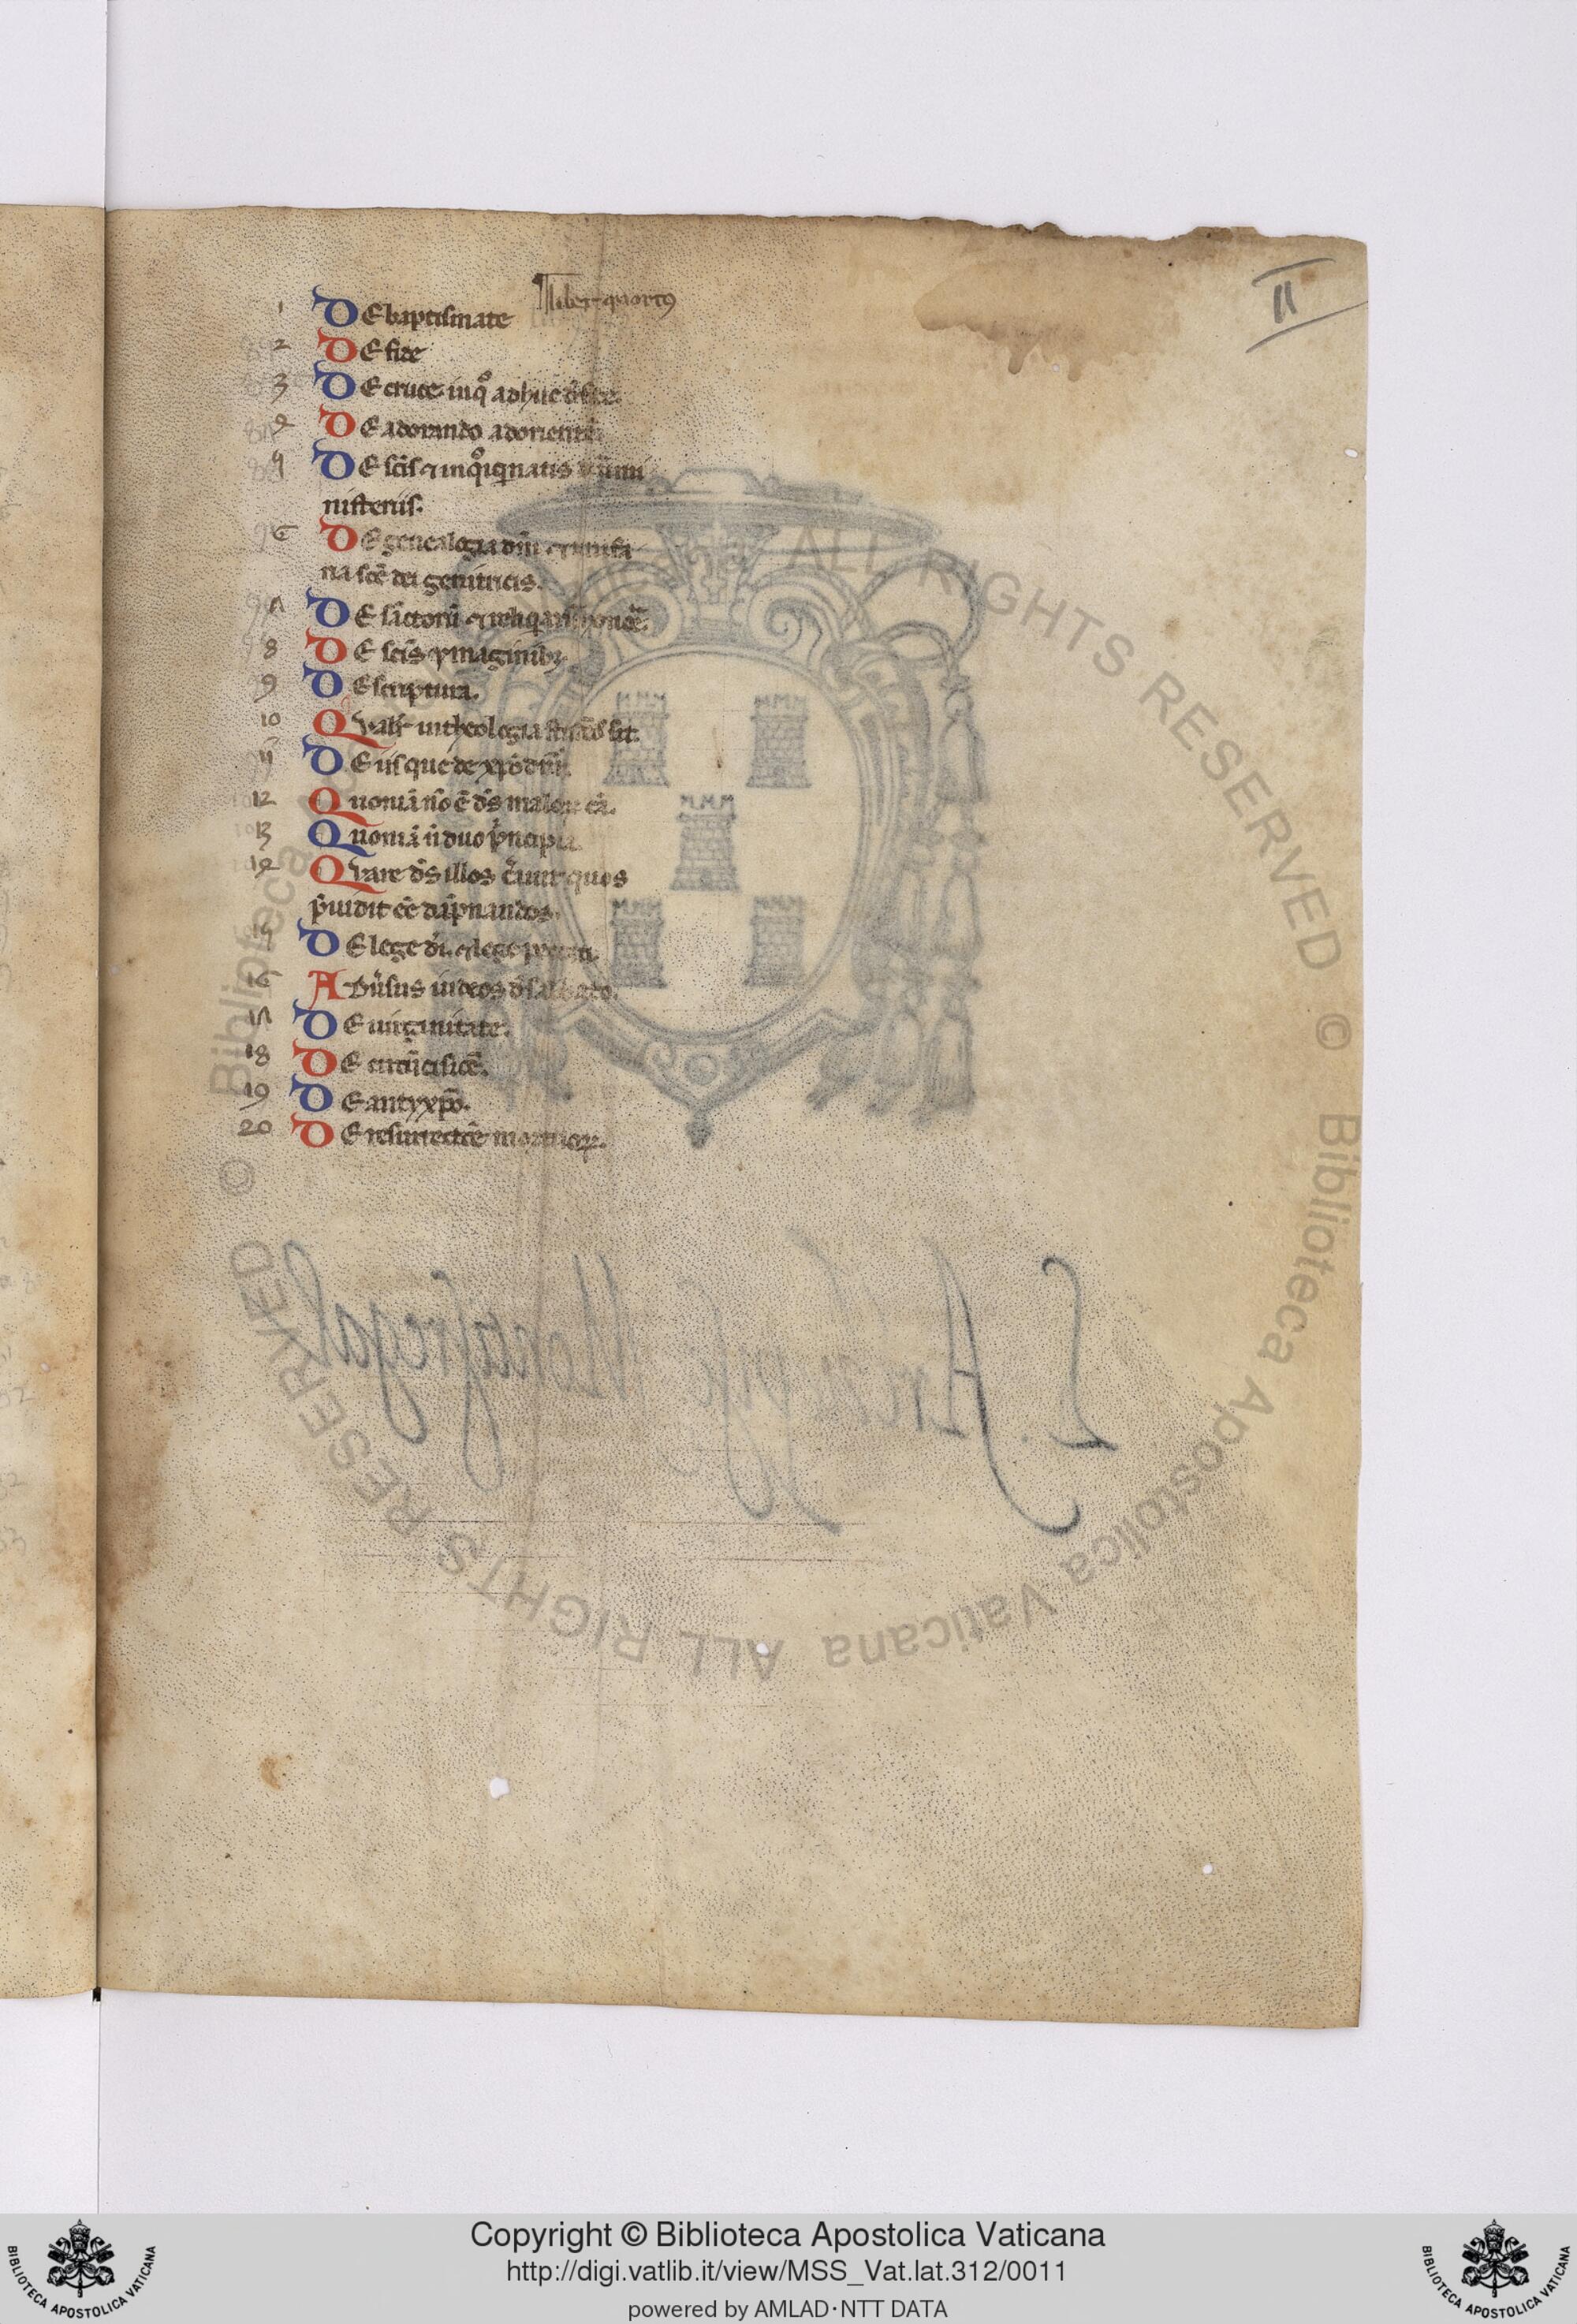 II
¶ liber quartꝯ
1 DE baptismate
2 DE fide
3 DE cruce inqͦ adhuc d̄ fide.
4 DE adorando ad orientē.
5 DE scīs ⁊ inqͦiqͣnatis dn̄i mi
nisteriis.
6 DE genealogia dn̄i ⁊
na scē dei genitricis.
7 DE sāctorū ⁊ reliqͣrū honore.
8 DE scīs ymaginibꝫ
9 DE scriptura.
10 Qualr̄ in theologia sit.
11 DE iis que de xp̄o dn̄r.
12 Quoniā nō ē d̄s maloꝝ cā.
13 Quoniā n̄ duo pͥncipia
14 Quare d̄s illos c̄uit quos
p̄uidit ēē dāpnandos.
15 DE lege dī. ⁊ lege peccati.
16 Adūsus iudeos d̄ sabbato.
17 DE uirginitate.
18 DE circūcisiōe.
19 DE antyxp̄o.
20 DE resurrectiōe mortuoꝝ.
© Biblioteca Apostolica Vaticana ALL RIGHTS RESERVED © Biblioteca Apostolica Vaticana ALL RIGHTS RESERVED
BIBLIOTECA APOSTOLICA VATICANA
Copyright © Biblioteca Apostolica Vaticana
http://digi.vatlib.it/view/MSS_Vat.lat.312/0011
powered by AMLAD·NTT DATA
BIBLIOTECA APOSTOLICA VATICANA